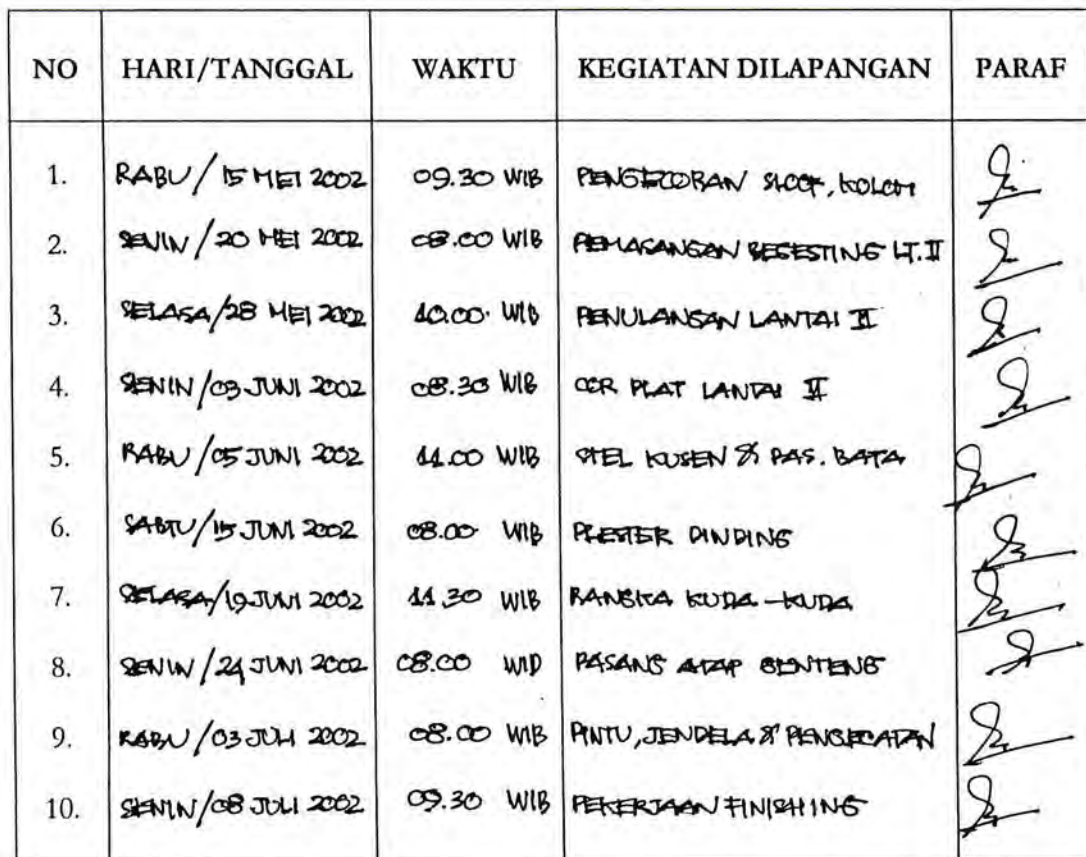 NO HARI/TANGGAL WAKTU KEGIATAN DILAPANGAN PARAF
1. RABU / 15 MEI 2002 09.30 WIB PENGECORAN SLOOF, KOLOM
2. SENIN / 20 MEI 2002 08.00 WIB PEMASANGAN BEGESTING LT. II
3. SELASA / 28 MEI 2002 10.00 WIB PENULANGAN LANTAI II
4. SENIN / 03 JUNI 2002 08.30 WIB COR PLAT LANTAI II
5. RABU / 05 JUNI 2002 11.00 WIB STEL KUSEN & PAS. BATA
6. SABTU / 15 JUNI 2002 08.00 WIB PLESTER DINDING
7. SELASA / 19 JUNI 2002 11.30 WIB RANGKA KUDA - KUDA
8. SENIN / 24 JUNI 2002 08.00 WIB PASANG ATAP GENTENG
9. RABU / 03 JULI 2002 08.00 WIB PINTU, JENDELA & PENGECATAN
10. SENIN / 08 JULI 2002 09.30 WIB PEKERJAAN FINISHING